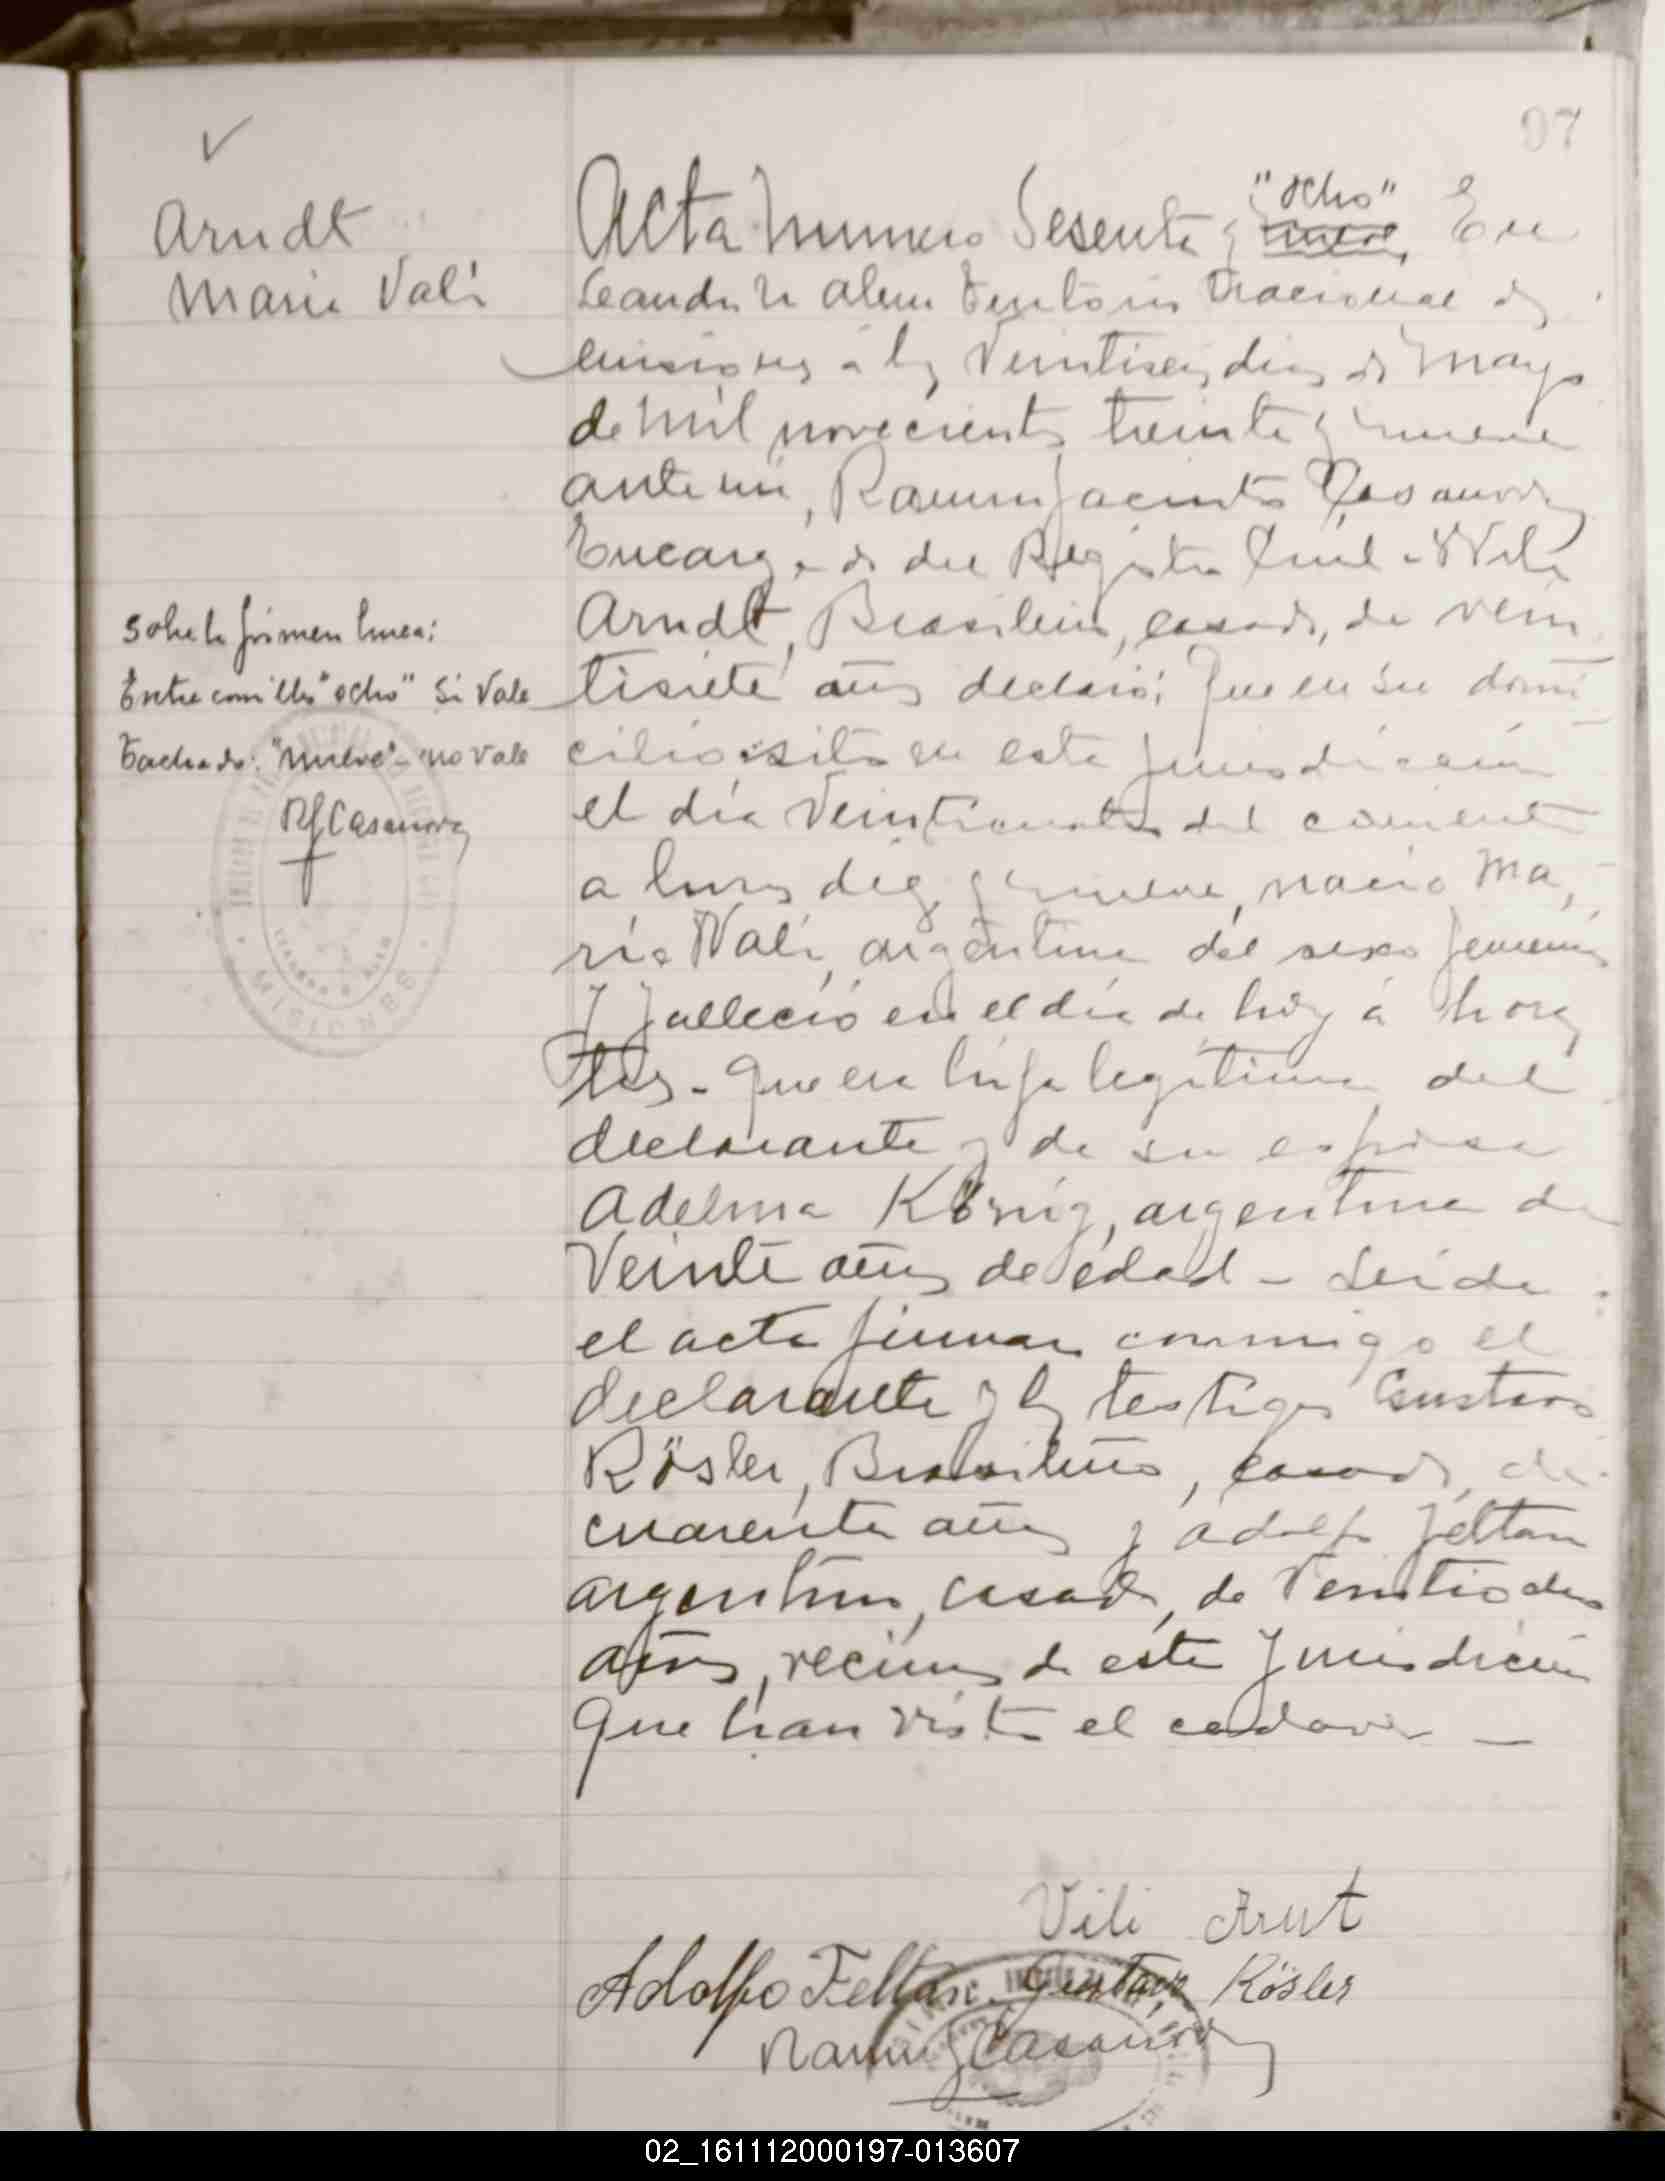 97
Arndt
Maria Vali
Acta Numero Sesenta y "ocho" nueve, En
Leandro N Alem Territorio Nacional de
Misiones á los Veintiseis dias de Mayo
de Mil novecientos treinta y nueve
ante mi, Ramon Jacinto Casanova
Encargado del Registro Civil - Wili
Arndt, Brasileño, casado, de vein
tisiete años declaró: Que en su domi
cilio sito en esta jurisdicción
el día Veinticuatro del corriente
a horas diez y nueve, nació Ma,
ria Vali, argentina del sexo femenino
y falleció en el día de hoy á horas
tres - Que era hija legitima del
declarante y de su esposa
Adelma König, argentina de
Veinte años de edad - Leida
el acta firman conmigo el
declarante y los testigos Gustavo
Rösler, Brasileño, casado, de
cuarenta años y Adolfo Feltan
argentino, casado, de Veintiodos
años, vecinos de esta Jurisdicción
que han visto el cadaver —
Sobre la primera linea:
Entre comillas "ocho" Si Vale
Tachado: "nueve" - no vale
RJCasanova
MISIONES
Vili Arnt
Adolfo Feltan. Gustavo Rösler
Ramon J Casanova
02_161112000197-013607